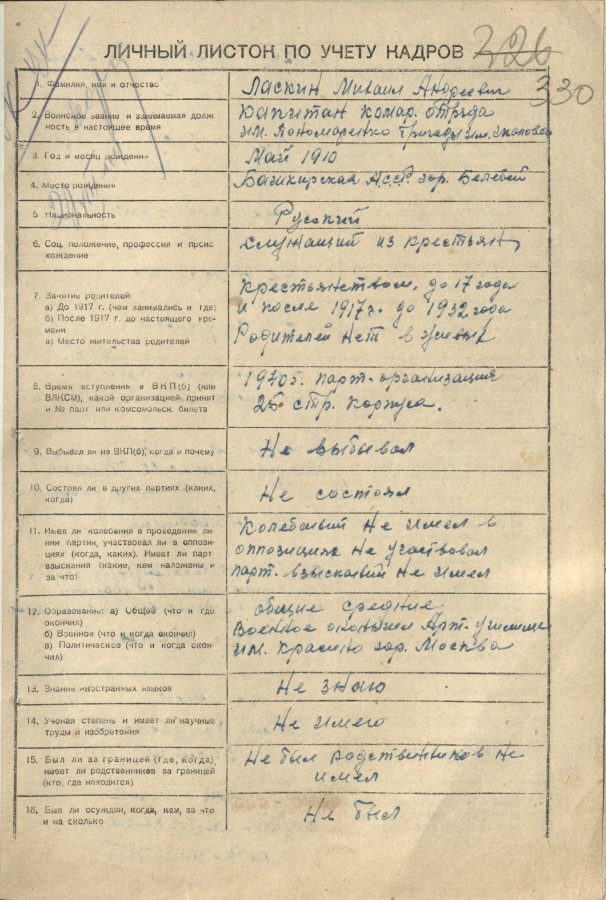 ЛИЧНЫЙ ЛИСТОК ПО УЧЕТУ КАДРОВ
326
330
1. Фамилия, имя и отчество
Ласкин Михаил Андреевич
2. Воинское звание и занимаемая долж
ность в настоящее время
Капитан комар. отряда
им. Пономаренко бригады им.
3. Год и месяц рождения
Май 1910
4. Место рождения
Башкирская АССР гор. Белебей
5. Национальность
Русский
6. Соц. положение, профессия и проис
хождение
служащий из крестьян
7. Занятие родителей:
а) До 1917 г. (чем занимались и где)
б) После 1917 г. до настоящего вре-
мени
а) Место жительства родителей
Крестьянством. до 17 года
и после 1917г. до 1932 года
Родителей нет в живых
8. Время вступления в ВКП(б) (или
ВЛКСМ), какой организацией принят
и № парт. или комсомольск. билета
1940г. парт-организация
25 стр. корпуса.
9. Выбывал ли из ВКП(б), когда и почему
Не выбывал
10. Состоял ли в других партиях (каких,
когда)
Не состоял
11. Имел ли колебания в проведении ли-
нии партии, участвовал ли в оппози-
циях (когда, каких). Имеет ли парт
взыскания (какие, кем наложены и
за что)
Колебаний Не имел в
оппозиции Не участвовал
парт. взысканий Не имел
12. Образование: а) Общее (что и где
окончил)
б) Военное (что и когда окончил)
в) Политическое (что и когда окон-
чил)
общие средние
Военное окончил Арт. училище
им. Красина гор. Москва
13. Знание иностранных языков
Не знаю
14. Ученая степень и имеет ли научные
труды и изобретения
Не имею
15. Был ли за границей (где, когда),
имеет ли родственников за границей
(кто, где находится)
Не был родственников Не
имел
16. Был ли осужден, когда, кем, за что
и на сколько
Не был